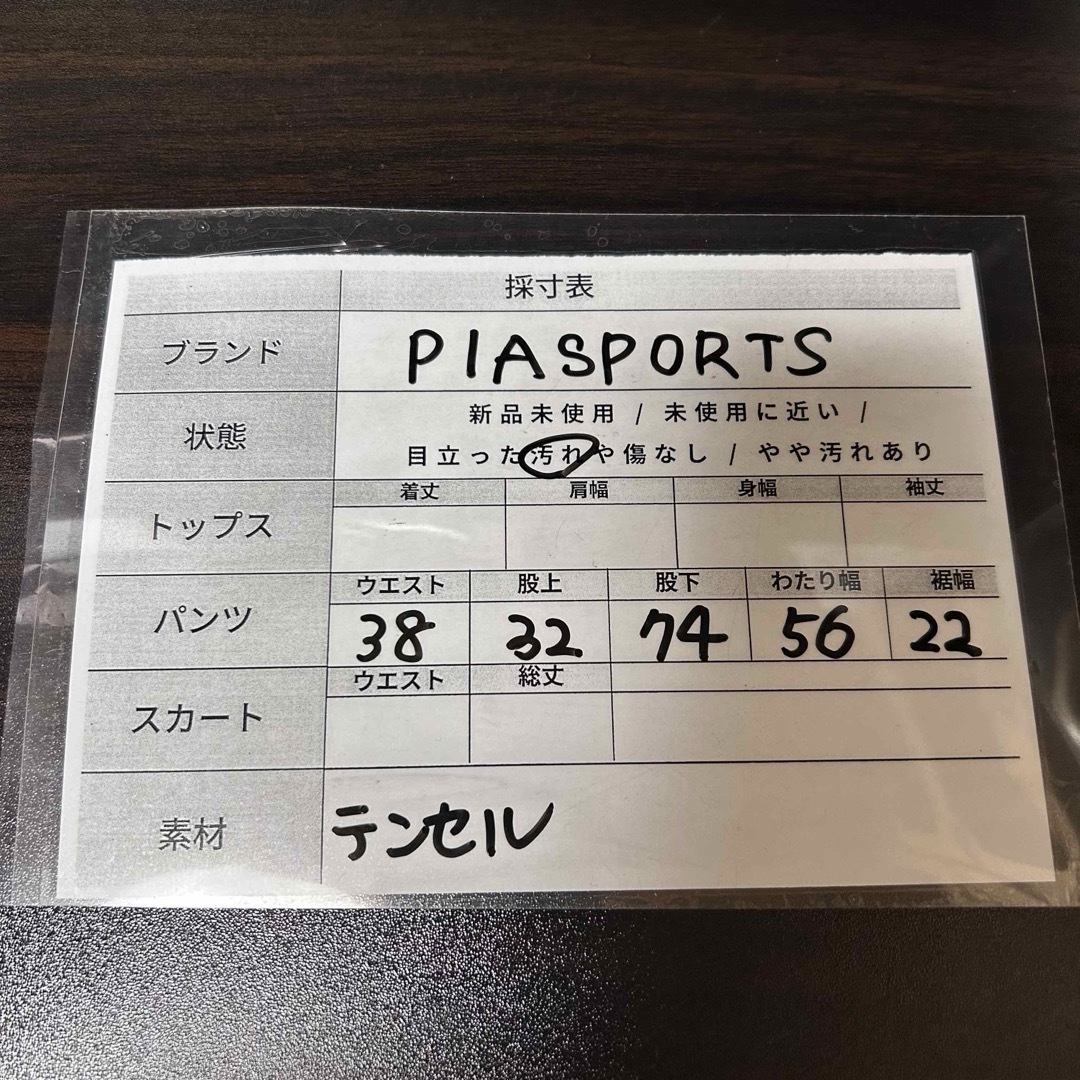 採寸表
ブランド PIASPORTS
状態 新品未使用 / 未使用に近い /
目立った汚れや傷なし / やや汚れあり
トップス 着丈 肩幅 身幅 袖丈
パンツ ウエスト 股上 股下 わたり幅 裾幅
38 32 74 56 22
スカート ウエスト 総丈
素材 テンセル